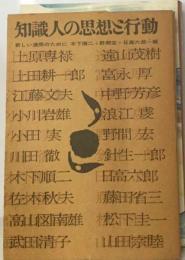 知識人の思想と行動
新しい連帯のために 木下順二・野間宏・日高六郎・編
上原専禄 遠山茂樹
上田耕一郎 富永 厚
江藤文夫 中野芳彦
小川岩雄 浪江 虔
小田 実 野間 宏
川田 徹 針生一郎
木下順二 日高六郎
佐木秋夫 藤田省三
高山図南雄 松下圭一
武田清子 山田宗睦